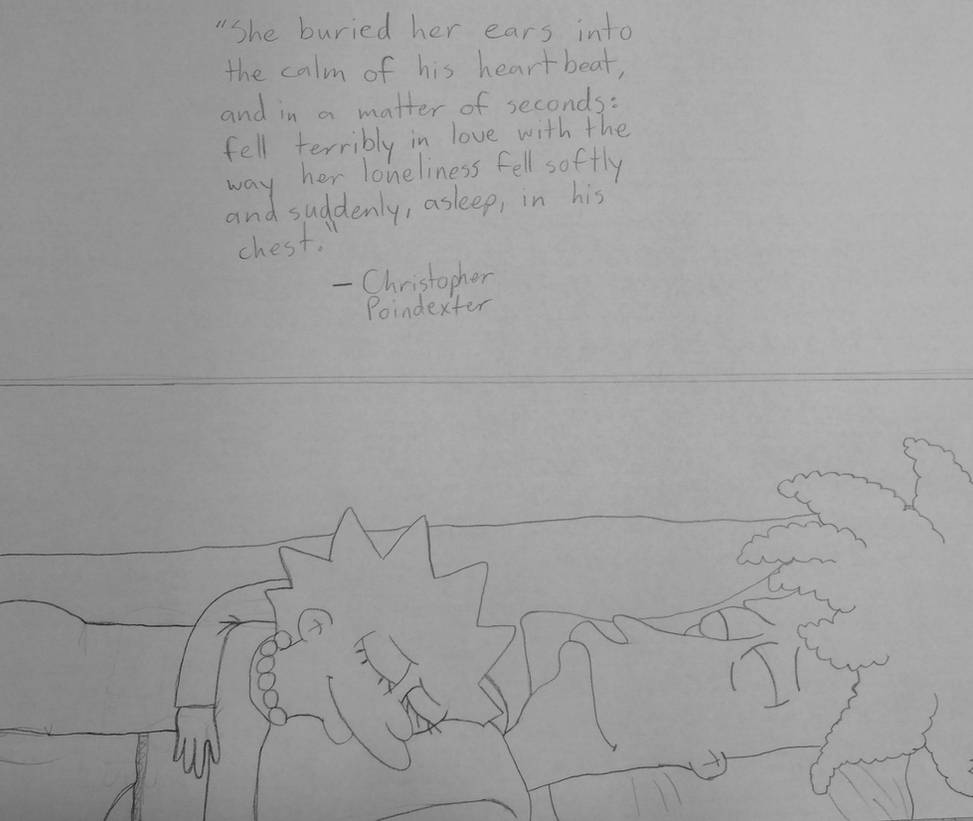 "She buried her ears into
the calm of his heartbeat,
and in a matter of seconds:
fell terribly in love with the
way her loneliness fell softly
and suddenly, asleep, in his
chest."
— Christopher
Poindexter